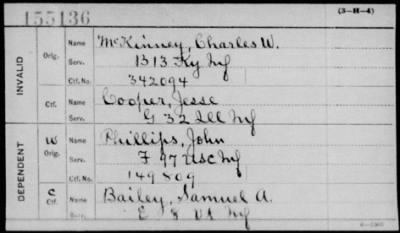 155136 (3-H-4)
INVALID
Orig. Name McKinney, Charles W.
Serv. B 13 Ky Inf
Ctf. No. 342094
Ctf. Name Cooper, Jesse
Serv. G 32 Ill Inf
DEPENDENT
W Orig. Name Phillips, John
Serv. F 97 USC Inf
Ctf. No. 149809
C Ctf. Name Bailey, Samuel A.
Serv. E 8 Vt Inf